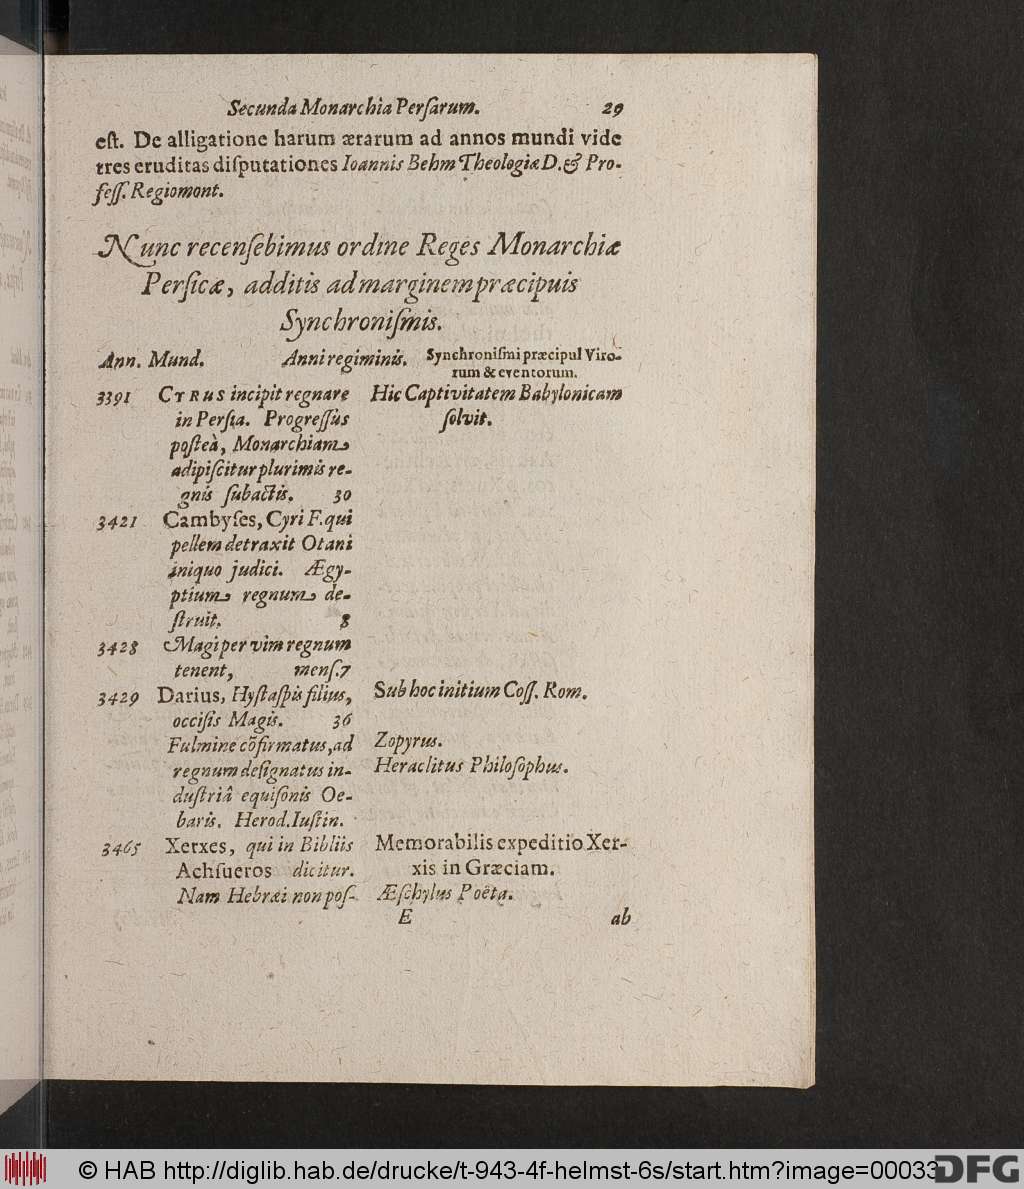 Secunda Monarchia Perſarum. 29
eſt. De alligatione harum ærarum ad annos mundi vide
tres eruditas diſputationes Ioannis Behm Theologiæ D. & Pro-
feſſ. Regiomont.
Nunc recenſebimus ordine Reges Monarchiæ
Perſicæ, additis ad marginem præcipuis
Synchroniſmis.
Ann. Mund. Anni regiminis. Synchroniſmi præcipui Viro-
rum & eventorum.
3391 CYRUS incipit regnare Hic Captivitatem Babylonicam
in Perſia. Progreſſùs ſolvit.
poſteà, Monarchiam
adipiſcitur plurimis re-
gnis ſubactis. 30
3421 Cambyſes, Cyri F. qui
pellem detraxit Otani
iniquo judici. Ægy-
ptium regnum de-
ſtruit. 8
3428 Magi per vim regnum
tenent, menſ. 7
3429 Darius, Hyſtaſpis filius, Sub hoc initium Coſſ. Rom.
occiſis Magis. 36
Fulmine cõfirmatus, ad Zopyrus.
regnum deſignatus in- Heraclitus Philoſophus.
duſtriâ equiſonis Oe-
baris. Herod. Iuſtin.
3465 Xerxes, qui in Bibliis Memorabilis expeditio Xer-
Achſueros dicitur. xis in Græciam.
Nam Hebræi non poſ- Æſchylus Poëta.
E ab
© HAB http://diglib.hab.de/drucke/t-943-4f-helmst-6s/start.htm?image=00033
DFG